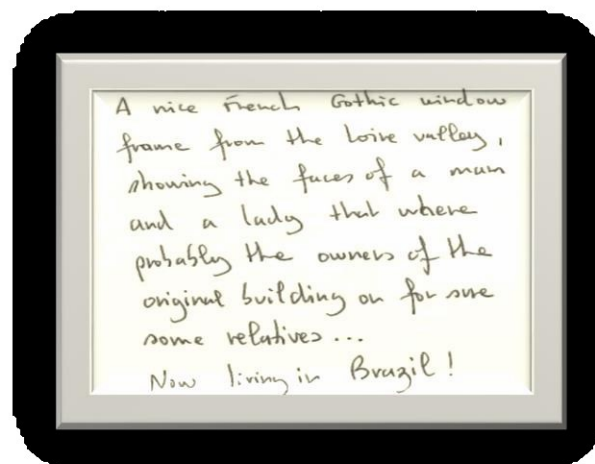 A nice French Gothic window
frame from the Loire valley,
showing the faces of a man
and a lady that where
probably the owners of the
original building or for sure
some relatives...
Now living in Brazil!